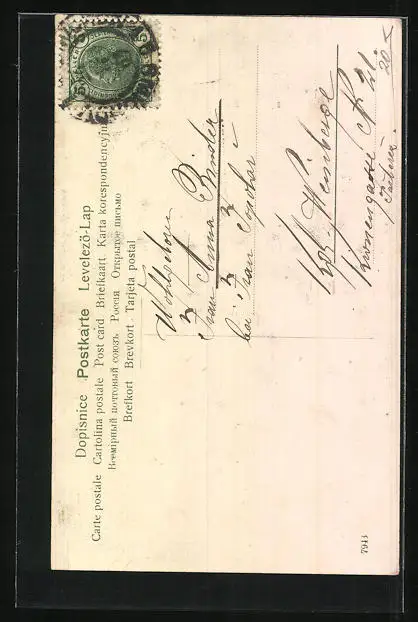 Dopisnice Postkarte Levelező-Lap
Carte postale Cartolina postale Post card Briefkaart Karta korespondencyjna
Всемірный почтовый союзъ Россія Открытое письмо
Brefkort Brevkort Tarjeta postal
Wohlgeboren
Frau Anna Binder
bei Frau
Kgl. Weinberge
N 21.
7944